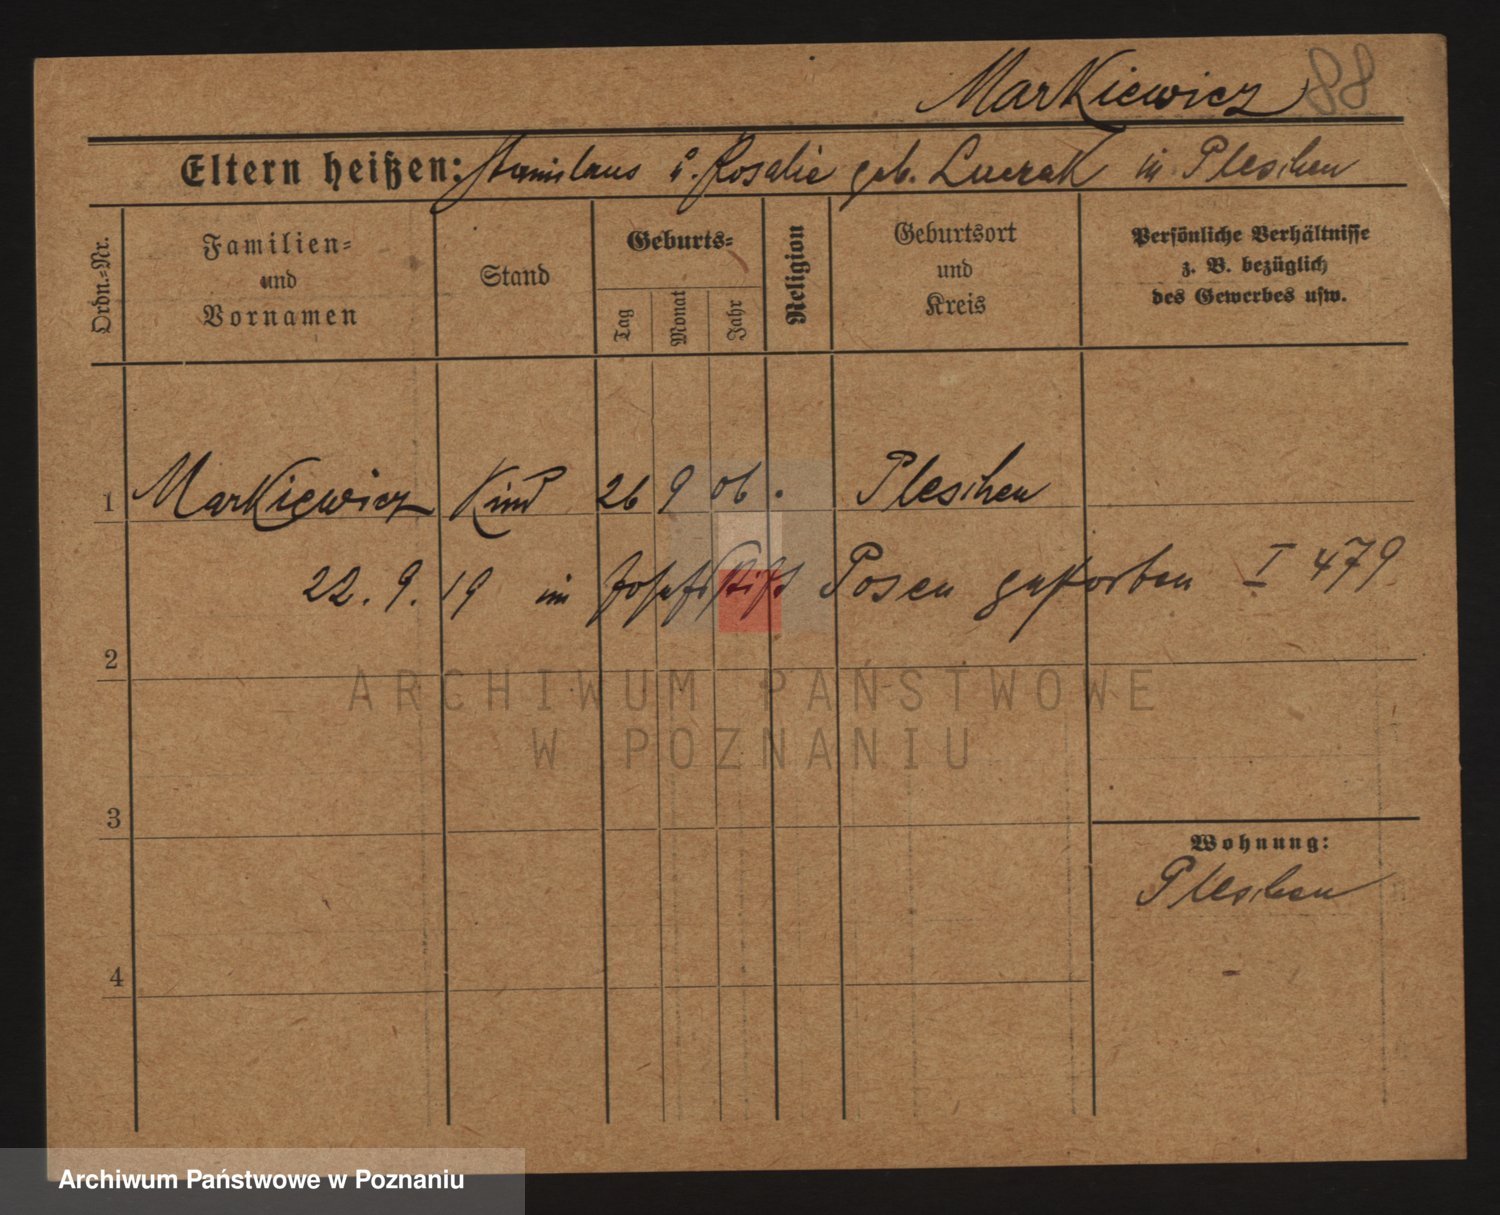 Markiewicz 88
Eltern heißen: Stanislaus u. Rosalie geb. in Pleschen
Ordn.-Nr.
Familien- und Vornamen
Stand
Geburts-
Tag
Monat
Jahr
Religion
Geburtsort und Kreis
Persönliche Verhältnisse
z. B. bezüglich
des Gewerbes usw.
1 Markiewicz Kind 26 9 06 . Pleschen
22. 9. 19 im Josefstift Posen gestorben I 479
2
ARCHIWUM PAŃSTWOWE
W POZNANIU
3
Wohnung:
Pleschen
4
Archiwum Państwowe w Poznaniu